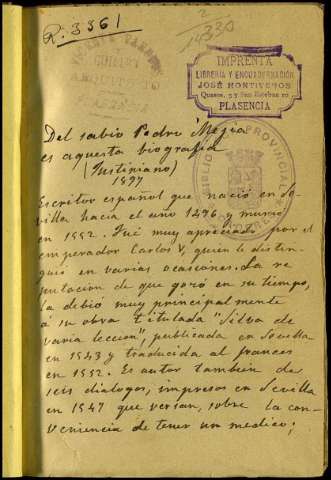 R. 3361
2
14330
VICENTE PAREDES
GUILLEN
ARQUITECTO
IMPRENTA
LIBRERÍA Y ENCUADERNACIÓN
JOSÉ HONTIVEROS
PLASENCIA
BIBLIOTECA PROVINCIAL
Del sabio Pedro Mejia
es aquesta biografia
(Justiniano)
1897
Escritor español que nació en Se-
villa hacia el año 1496 y murió
en 1552. Fué muy apreciado por el
emperador Carlos V, quien le distin-
guió en varias ocasiones. La re-
putacion de que gozó en su tiempo,
la debió muy principalmente
á su obra titulada "Silva de
varia leccion", publicada en Sevilla
en 1543 y traducida al frances
en 1552. Es autor tambien de
seis dialogos, impresos en Sevilla
en 1547 que versan, sobre la con-
veniencia de tener un medico;